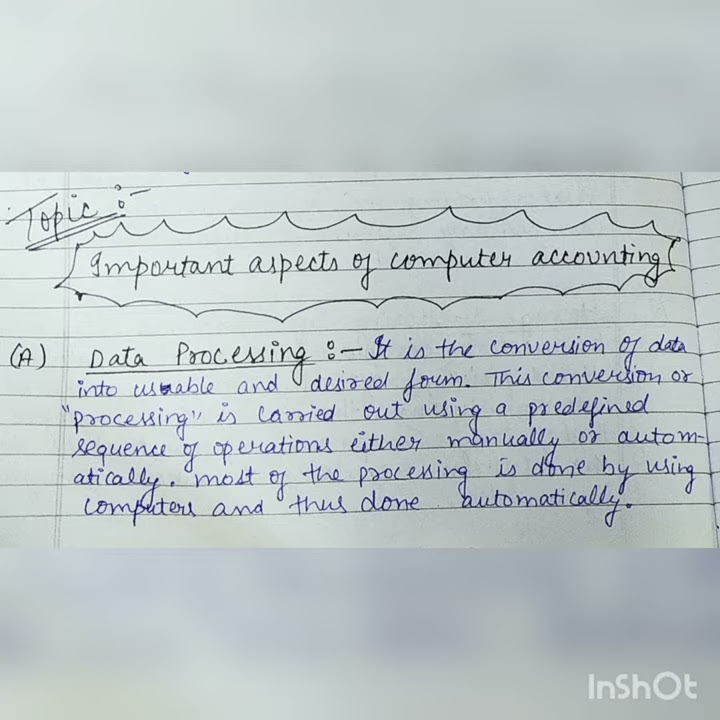 Topic :-
Important aspects of computer accounting
(A) Data Processing :- It is the conversion of data
into usable and desired form. This conversion or
"processing" is carried out using a predefined
sequence of operations either manually or autom-
atically. most of the processing is done by using
computers and thus done automatically.
InShOt